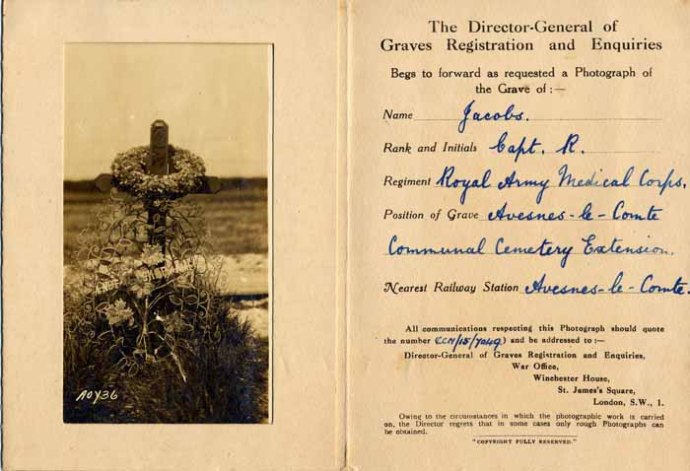 AOY36
The Director-General of
Graves Registration and Enquiries
Begs to forward as requested a Photograph of
the Grave of :—
Name Jacobs.
Rank and Initials Capt. R.
Regiment Royal Army Medical Corps,
Position of Grave Avesnes-le-Comte
Communal Cemetery Extension.
Nearest Railway Station Avesnes-le-Comte.
All communications respecting this Photograph should quote
the number and be addressed to :—
Director-General of Graves Registration and Enquiries,
War Office,
Winchester House,
St. James's Square,
London, S.W., 1.
Owing to the circumstances in which the photographic work is carried
on, the Director regrets that in some cases only rough Photographs can
be obtained.
"COPYRIGHT FULLY RESERVED."